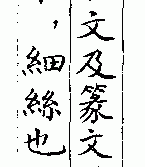 文及篆文
，細絲也